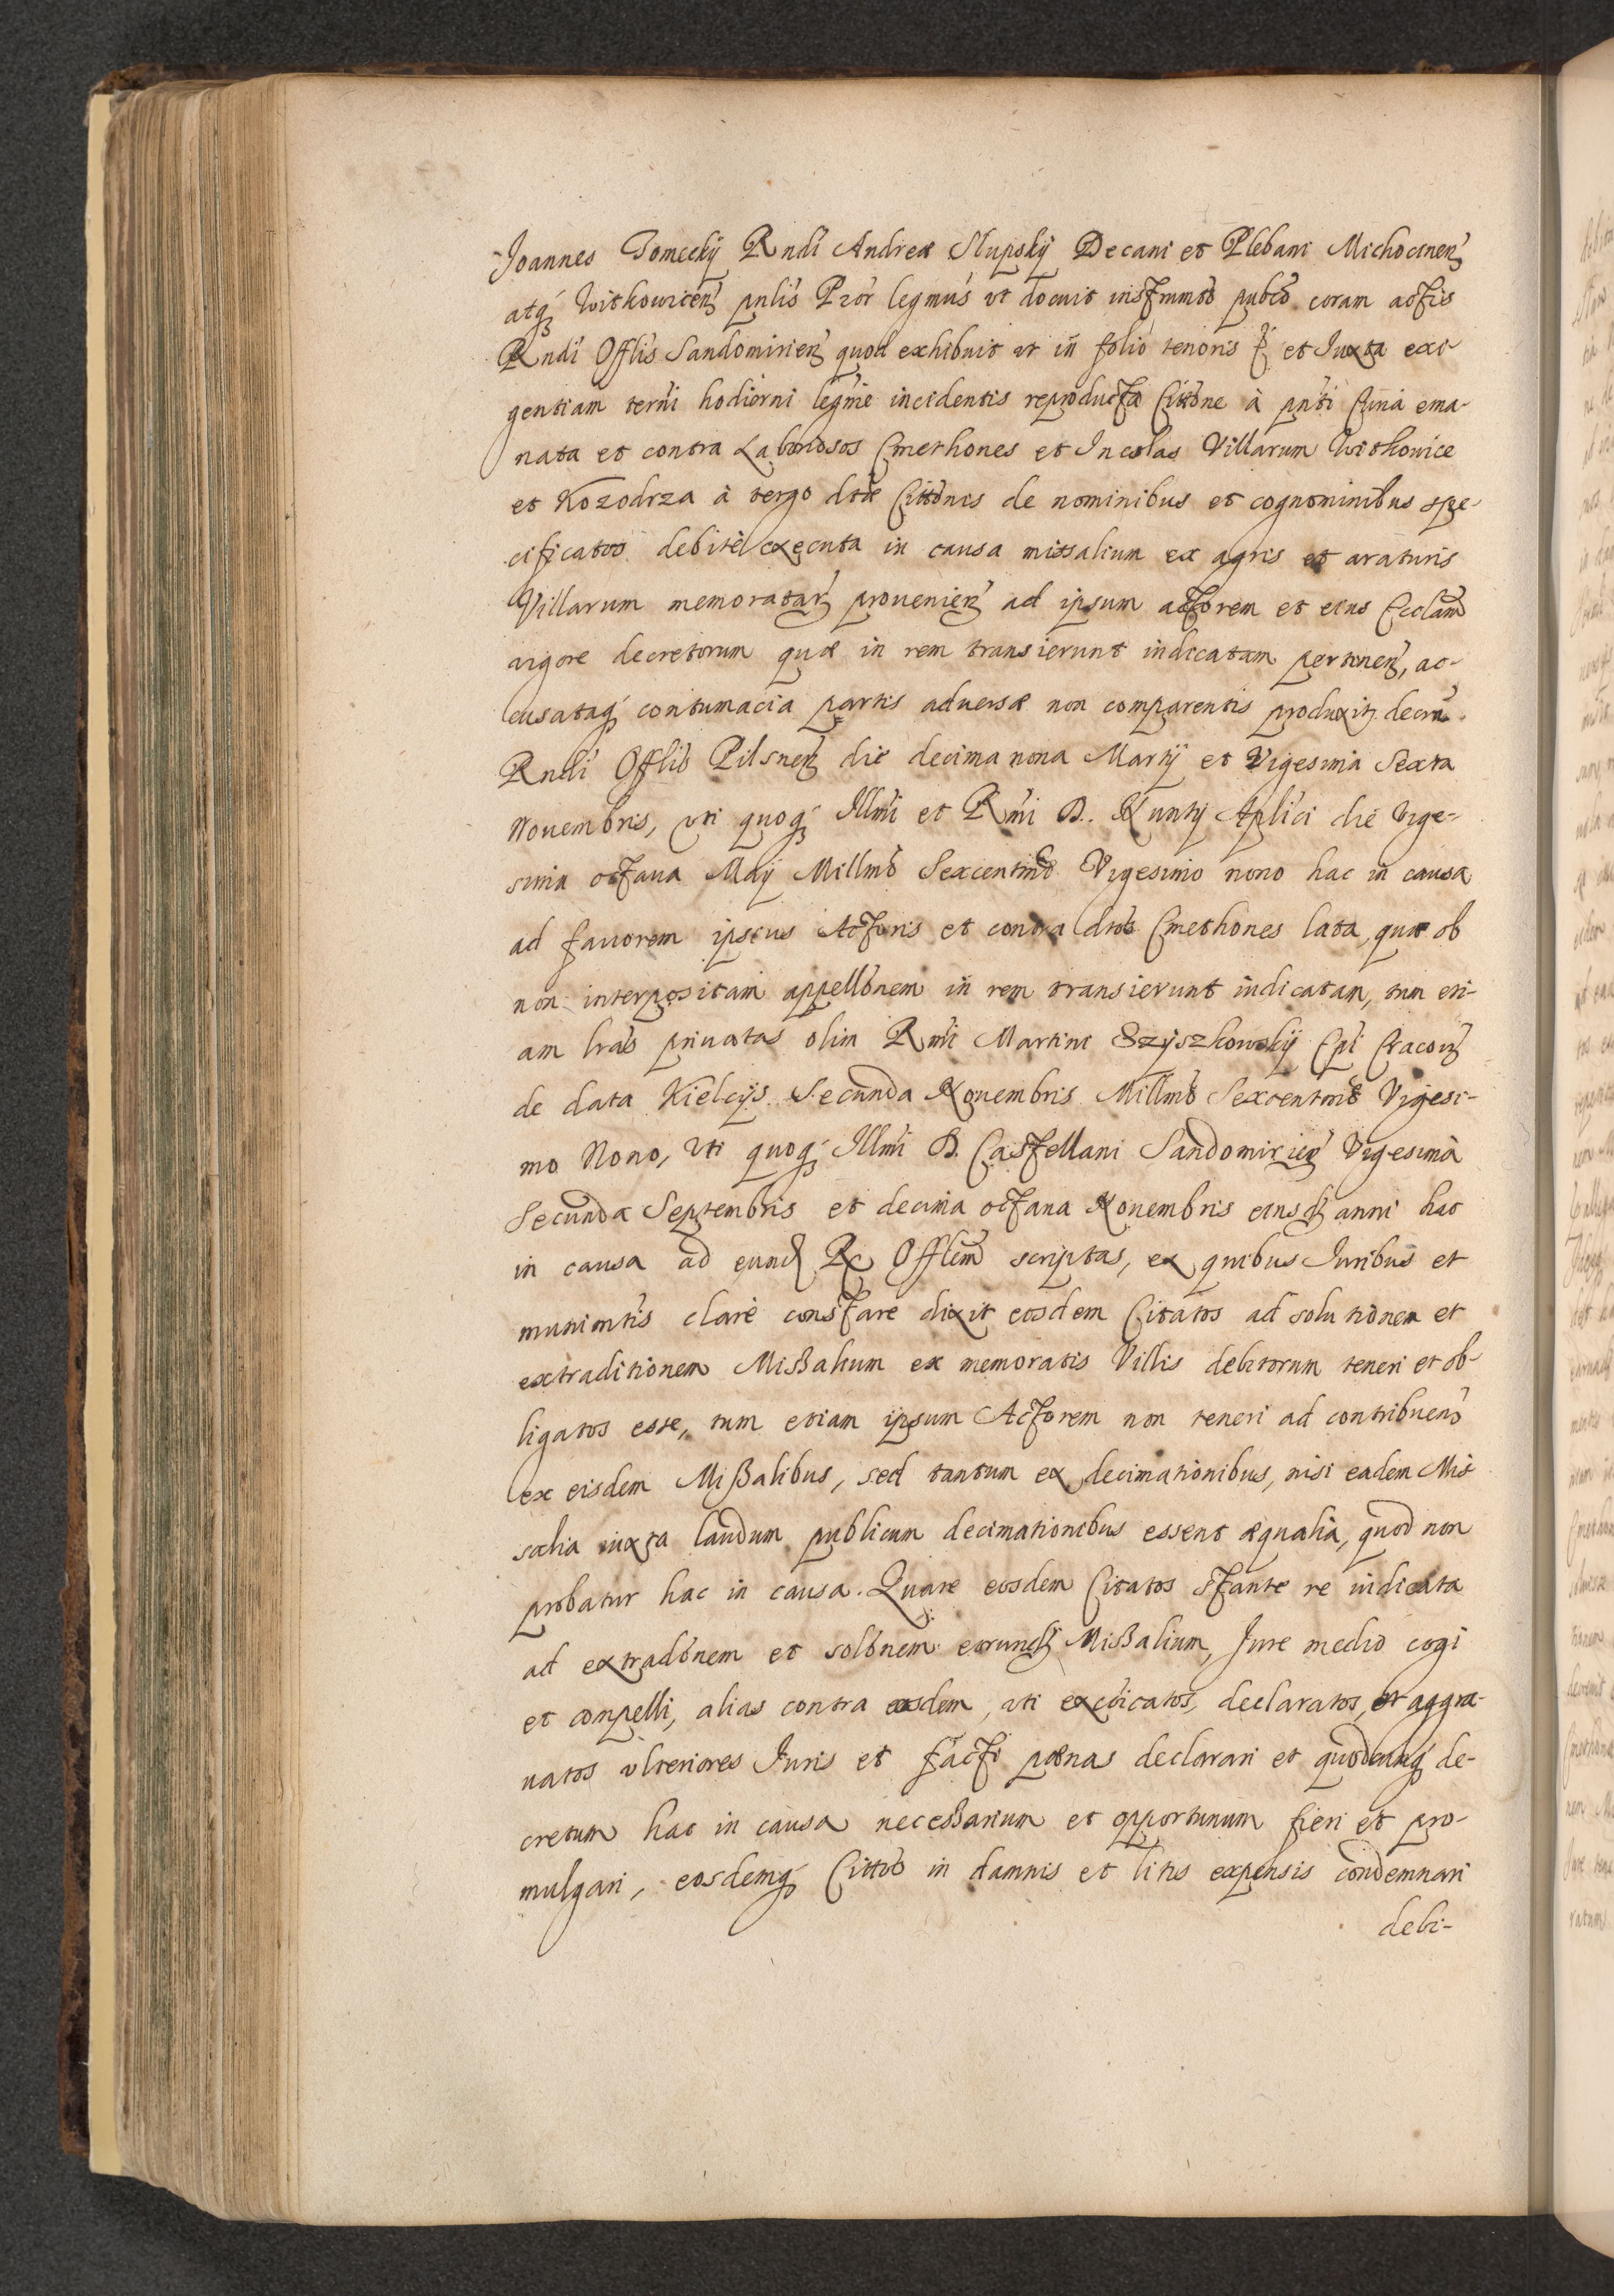 Joannes Tomecky Rndi Andreæ Slupskÿ Decani et Plebani Michocinen
atq Witkowicen pnlis Pror legmus vt docuit instrumto pubco coram actis
Rndi Offlis Sandomirien quod exhibuit vt in folio tenoris et Juxta exi-
gentiam termi hodierni legme incidentis reproducta Cittone à pnti Curia ema-
nata et contra Laboriosos Cmethones et Incolas Villarum Witkowice
et Kozodrza à tergo dtæ Cittonis de nominibus et cognominibus spe-
cificatos debitè executa in causa missalium ex agris et araturis
Villarum memoratar prouenien ad ipsum actorem et eius Ecclam
vigore decretorum quæ in rem transierunt iudicatam pertinen, ac-
cusataq contumacia partis aduersæ non comparentis produxit decra
Rndi Offlis Pilsnen die decima nona Martÿ et Vigesima Sexta
Nouembris, vti quoq Illmi et Rmi D. Nuntÿ Aplici die Vige-
sima octaua Maÿ Millmo Sexcentmo Vigesimo nono hac in causa
ad fauorem ipsius Actoris et contra dtos Cmethones lata, quæ ob
non interpositam appellonem in rem transierunt iudicatam, tum eti-
am lras priuatas olim Rmi Martini Szÿszkowskÿ Epi Cracouien
de data Kielcÿs Secunda Nouembris Millmo Sexcentmo Vigesi-
mo Nono, vti quoq Illmi D. Castellani Sandomirien Vigesima
Secunda Septembris et decima octaua Nouembris eiusd anni hac
in causa ad eund R Offlem scriptas, ex quibus Juribus et
munimtis clarè constare dixit eosdem Citatos ad solutionem et
extraditionem Mißalium ex memoratis Villis debitorum teneri et ob-
ligatos esse, tum etiam ipsum Actorem non teneri ad contribuen
ex eisdem Mißalibus, sed tantum ex decimationibus, nisi eadem Mis
salia iuxta laudum publicum decimationibus essent æqualia, quod non
probatur hac in causa. Quare eosdem Citatos stante re iudicata
ad extradonem et solonem eorund Mißalium, Jure medio cogi
et compelli, alias contra eosdem, vti excoicatos, declaratos, et aggra-
uatos vlteriores Juris et facti pœnas declarari et quodcunq de-
cretum hac in causa necessarium et opportunum fieri et pro-
mulgari, eosdemq Cittos in damnis et litis expensis condemnari
debi-